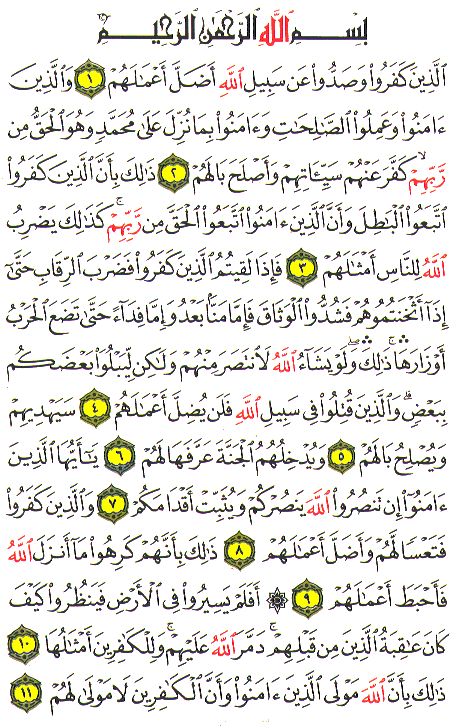 بِسْمِ اللَّهِ الرَّحْمَٰنِ الرَّحِيمِ
الَّذِينَ كَفَرُوا وَصَدُّوا عَن سَبِيلِ اللَّهِ أَضَلَّ أَعْمَالَهُمْ ١ وَالَّذِينَ
ءَامَنُوا وَعَمِلُوا الصَّالِحَاتِ وَءَامَنُوا بِمَا نُزِّلَ عَلَىٰ مُحَمَّدٍ وَهُوَ الْحَقُّ مِن
رَّبِّهِمْ كَفَّرَ عَنْهُمْ سَيِّئَاتِهِمْ وَأَصْلَحَ بَالَهُمْ ٢ ذَٰلِكَ بِأَنَّ الَّذِينَ كَفَرُوا
اتَّبَعُوا الْبَاطِلَ وَأَنَّ الَّذِينَ ءَامَنُوا اتَّبَعُوا الْحَقَّ مِن رَّبِّهِمْ ۚ كَذَٰلِكَ يَضْرِبُ
اللَّهُ لِلنَّاسِ أَمْثَالَهُمْ ٣ فَإِذَا لَقِيتُمُ الَّذِينَ كَفَرُوا فَضَرْبَ الرِّقَابِ حَتَّىٰ
إِذَا أَثْخَنتُمُوهُمْ فَشُدُّوا الْوَثَاقَ فَإِمَّا مَنًّا بَعْدُ وَإِمَّا فِدَاءً حَتَّىٰ تَضَعَ الْحَرْبُ
أَوْزَارَهَا ۚ ذَٰلِكَ ۖ وَلَوْ يَشَاءُ اللَّهُ لَانتَصَرَ مِنْهُمْ وَلَٰكِن لِّيَبْلُوَا بَعْضَكُم
بِبَعْضٍ ۗ وَالَّذِينَ قُتِلُوا فِي سَبِيلِ اللَّهِ فَلَن يُضِلَّ أَعْمَالَهُمْ ٤ سَيَهْدِيهِمْ
وَيُصْلِحُ بَالَهُمْ ٥ وَيُدْخِلُهُمُ الْجَنَّةَ عَرَّفَهَا لَهُمْ ٦ يَا أَيُّهَا الَّذِينَ
ءَامَنُوا إِن تَنصُرُوا اللَّهَ يَنصُرْكُمْ وَيُثَبِّتْ أَقْدَامَكُمْ ٧ وَالَّذِينَ كَفَرُوا
فَتَعْسًا لَّهُمْ وَأَضَلَّ أَعْمَالَهُمْ ٨ ذَٰلِكَ بِأَنَّهُمْ كَرِهُوا مَا أَنزَلَ اللَّهُ
فَأَحْبَطَ أَعْمَالَهُمْ ٩ ۞ أَفَلَمْ يَسِيرُوا فِي الْأَرْضِ فَيَنظُرُوا كَيْفَ
كَانَ عَاقِبَةُ الَّذِينَ مِن قَبْلِهِمْ ۚ دَمَّرَ اللَّهُ عَلَيْهِمْ ۖ وَلِلْكَافِرِينَ أَمْثَالُهَا ١٠
ذَٰلِكَ بِأَنَّ اللَّهَ مَوْلَى الَّذِينَ ءَامَنُوا وَأَنَّ الْكَافِرِينَ لَا مَوْلَىٰ لَهُمْ ١١